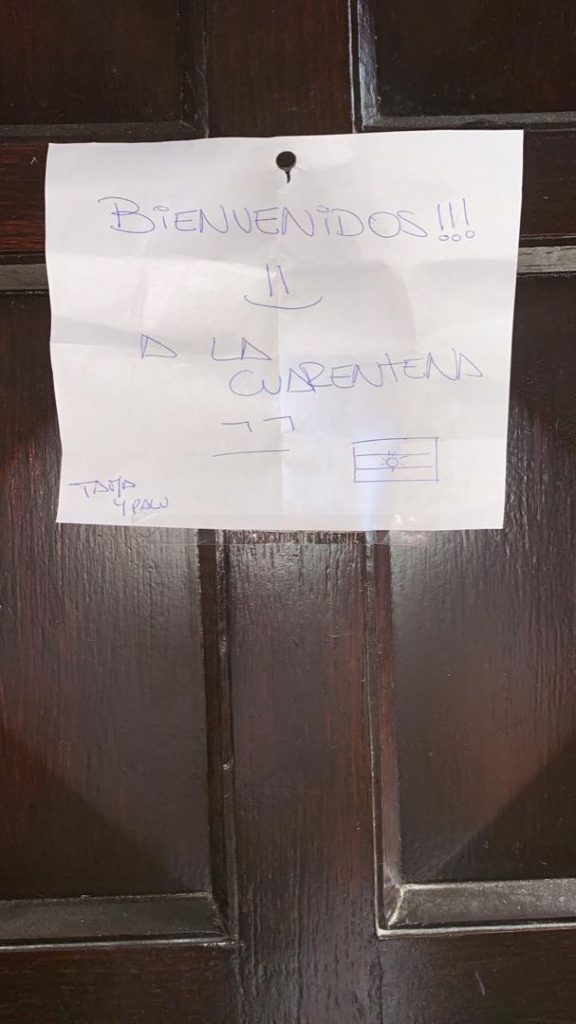 BIENVENIDOS!!!
A LA
CUARENTENA
Y PALU